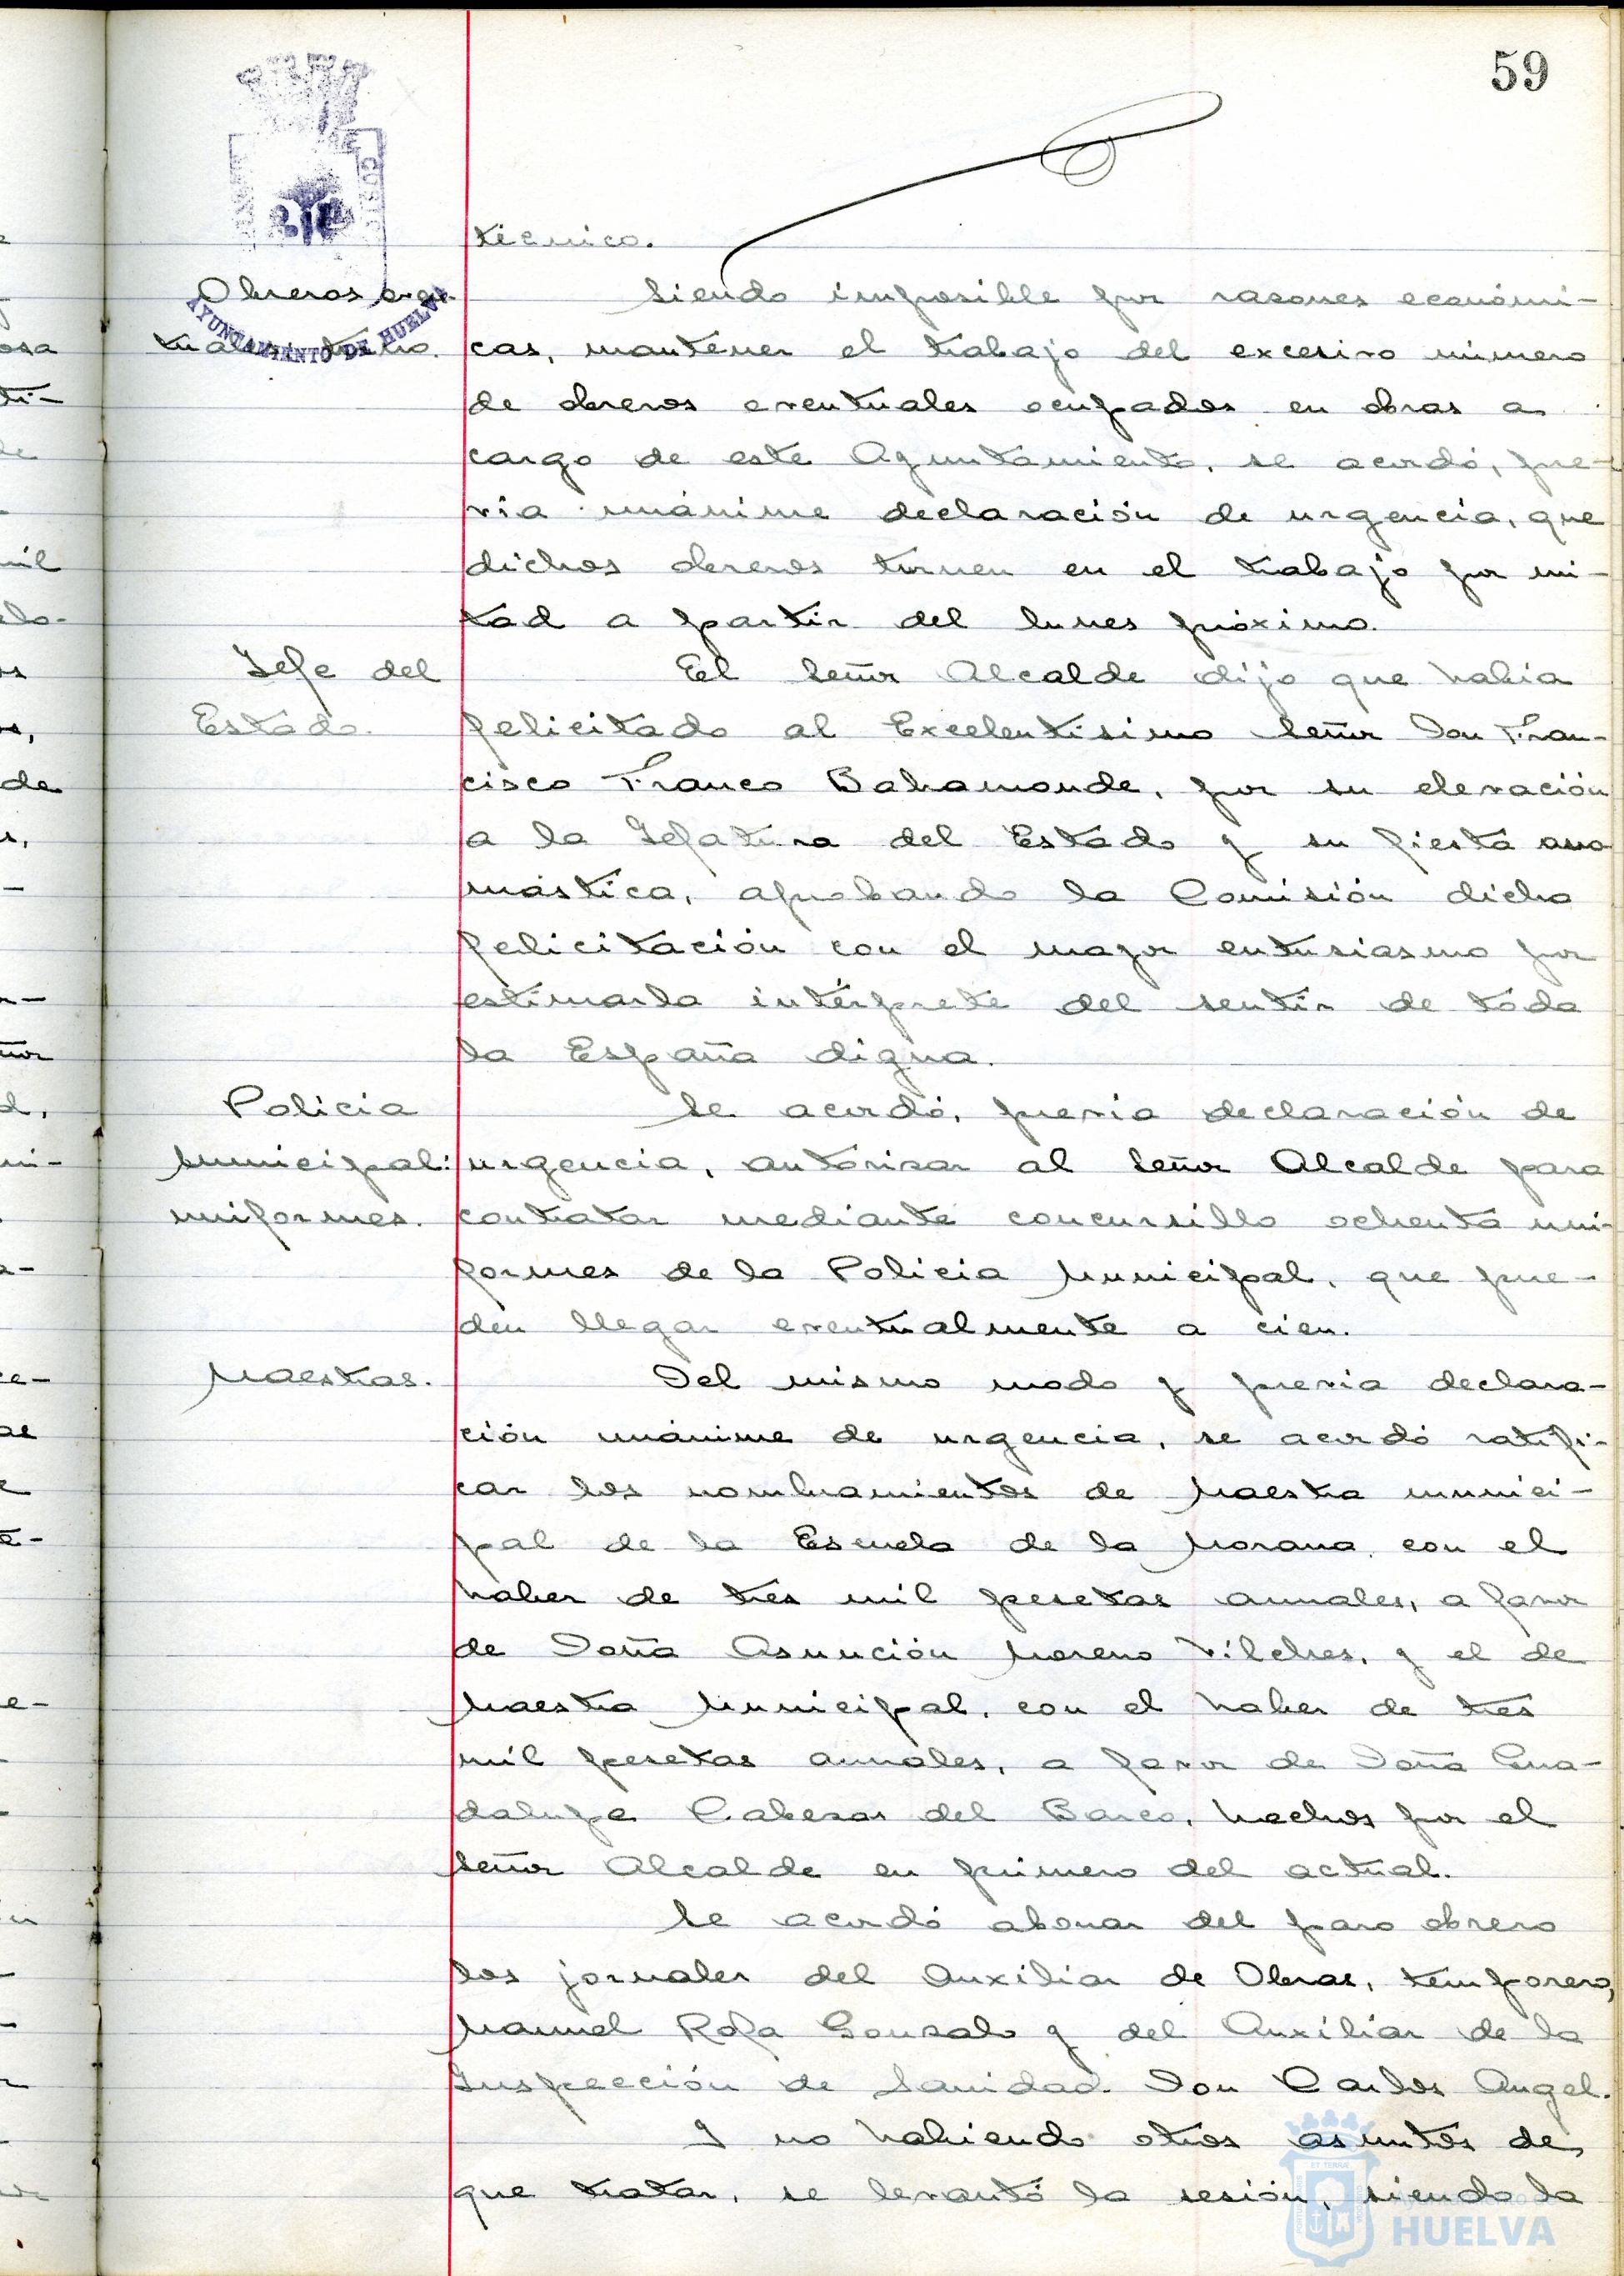 59
técnico.
Obreros even-
tuales: turno.
Siendo imposible por razones económi-
cas, mantener el trabajo del excesivo número
de obreros eventuales ocupados en obras a
cargo de este Ayuntamiento, se acordó, pre-
via unánime declaración de urgencia, que
dichos obreros turnen en el trabajo por mi-
tad a partir del lunes próximo.
Jefe del
Estado.
El Señor Alcalde dijo que había
felicitado al Excelentísimo Señor Don Fran-
cisco Franco Bahamonde, por su elevación
a la Jefatura del Estado y su fiesta ono-
mástica, aprobando la Comisión dicha
felicitación con el mayor entusiasmo por
estimarla intérprete del sentir de toda
la España digna.
Policía
Municipal:
uniformes.
Se acordó, previa declaración de
urgencia, autorizar al Señor Alcalde para
contratar mediante concursillo ochenta uni-
formes de la Policía Municipal, que pue-
den llegar eventualmente a cien.
Maestras.
Del mismo modo y previa declara-
ción unánime de urgencia, se acordó ratifi-
car los nombramientos de Maestra munici-
pal de la Escuela de la Morana, con el
haber de tres mil pesetas anuales, a favor
de Doña Asunción Moreno Vílches, y el de
Maestra Municipal, con el haber de tres
mil pesetas anuales, a favor de Doña Gua-
dalupe Cabezas del Barco, hechos por el
Señor Alcalde en primero del actual.
Se acordó abonar del paro obrero
los jornales del Auxiliar de Obras, temporero,
Manuel Rofa Gonzalo y del Auxiliar de la
Inspección de Sanidad Don Carlos Angel.
Y no habiendo otros asuntos de
que tratar, se levantó la sesión, siendo la
AYUNTAMIENTO DE HUELVA
HUELVA